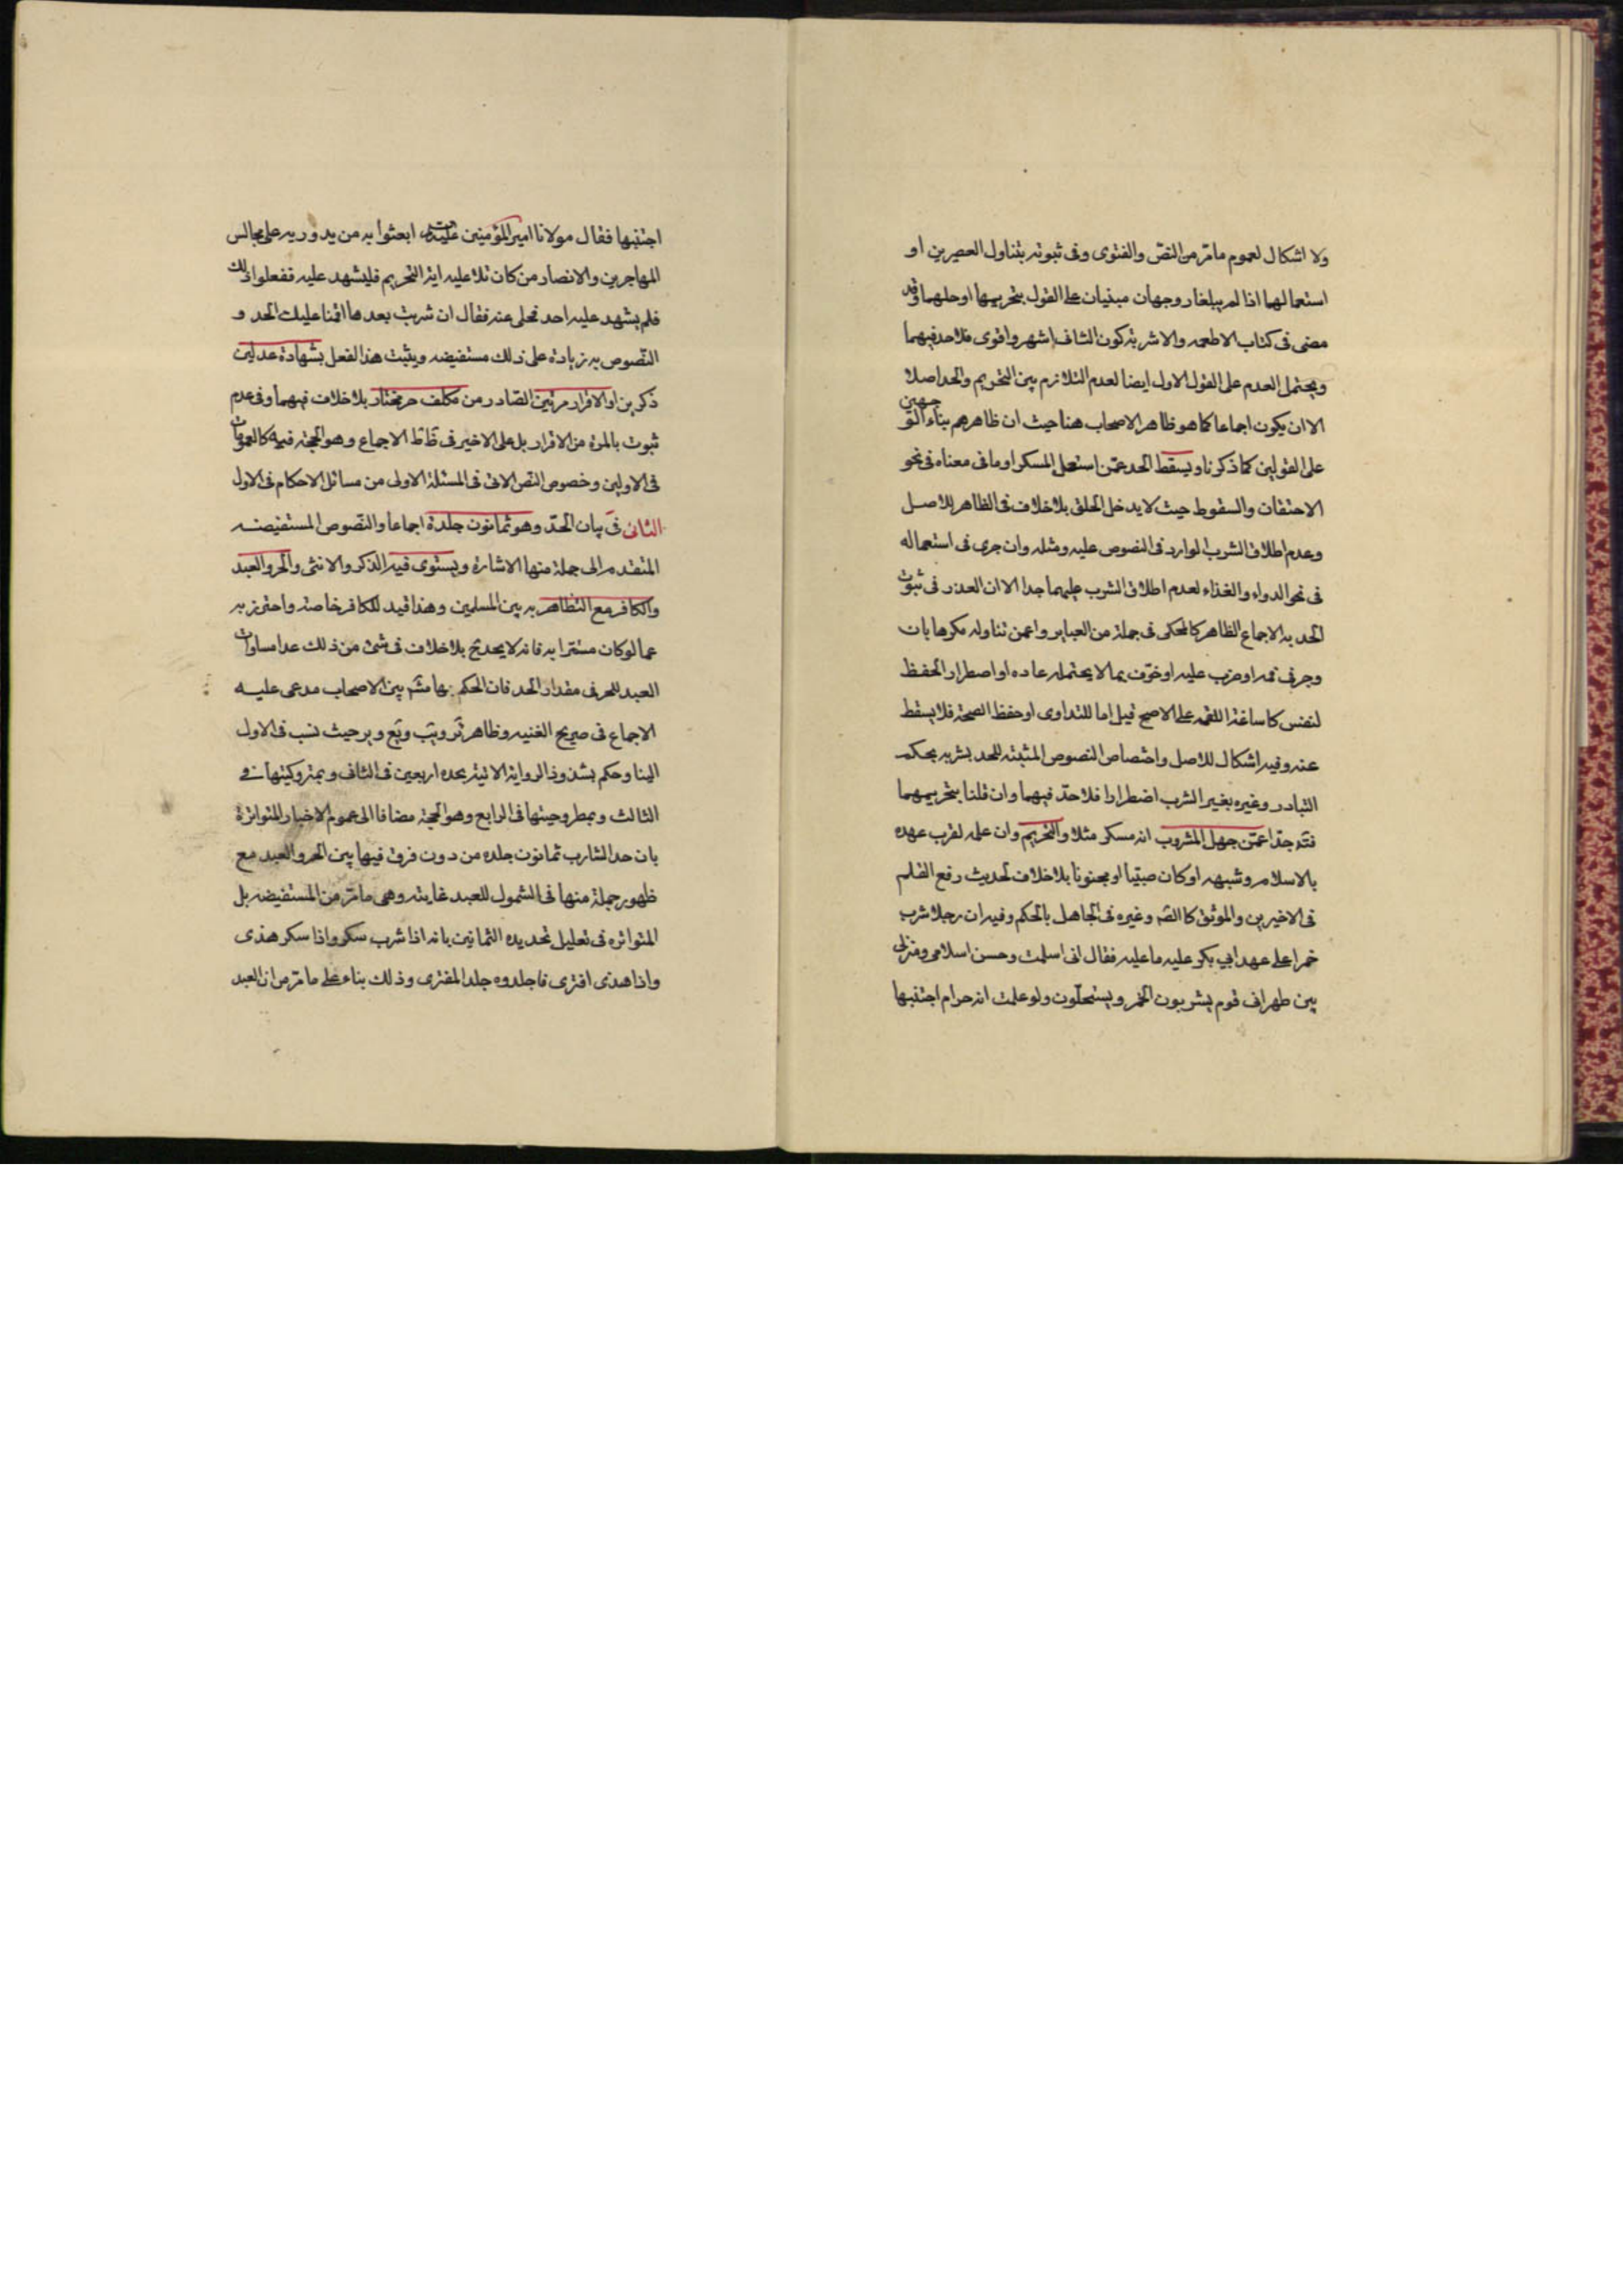 ولا اشكال لعموم مامر من النص والفتوى وفى ثبوته بتناول العصيرين او
استعمالهما اذا لم يبلغا وجهان مبنيان على القول بتحريمها او حلهما وقد
مضى فى كتاب الاطعمه والاشربة كون الثانى اشهر واقوى فلا حد فيهما
ويحتمل العدم على القول الاول ايضا لعدم التلازم بين التحريم والحد اصلا
الا ان يكون اجماعا كما هو ظاهر الاصحاب هنا حيث ان ظاهرهم بناء الوجهين
على القولين كما ذكرنا ويسقط الحد عمن استعمل المسكر او ما فى معناه فى نحو
الاحتقان والسقوط حيث لا يدخل الحلق بلا خلاف فى الظاهر للاصل
وعدم اطلاق الشرب الوارد فى النصوص عليه ومثله وان جرى فى استعماله
فى نحو الدواء والغذاء لعدم اطلاق الشرب عليهما جدا الا ان العذر فى ثبوت
الحد به الاجماع الظاهر كالمحكى فى جملة من العباير واعمن تناوله مكرها بان
وجر فى فمه او ضرب عليه او خوف بما لا يحتمله عاده او اضطرار الحفظ
لنفس كاساغة اللقمه على الاصح قيل اما للتداوى او حفظ الصحة فلا يسقط
عنه وفيه اشكال للاصل واختصاص النصوص المثبته للحد بشربه بحكم
التبادر وغيره بغير الشرب اضطرارا فلا حد فيهما وان قلنا بتحريمهما
فتد جدا عمن جهل المشروب انه مسكر مثلا والتحريم وان علمه لقرب عهده
بالاسلام وشبهه او كان صبيا او مجنونا بلا خلاف لحديث رفع القلم
فى الاخيرين والموثق كالصه وغيره فى الجاهل بالحكم وفيه ان رجلا شرب
خمرا على عهد ابي بكر عليه ما عليه فقال انى اسلمت وحسن اسلامى ومنزلى
بين ظهرانى قوم يشربون الخمر ويستحلون ولو علمت انه حرام اجتنبها
اجتنبها فقال مولانا امير المؤمنين ابعثوا به من يدور به على مجالس
المهاجرين والانصار من كان تلا عليه اية التحريم فليشهد عليه ففعلوا ذلك
فلم يشهد عليه احد فخلى عنه فقال ان شربت بعدها اقمنا عليك الحد و
النصوص به زيادة على ذلك مستفيضه ويثبت هذا الفعل بشهادة عدلين
ذكرين او الاقرار مرتين الصادر من مكلف حر مختار بلا خلاف فيهما وفى عدم
ثبوت بالمرة من الاقرار بل على الاخير فى ظاظ الاجماع وهو الحجة فيه كالعمومات
فى الاولين وخصوص النص الاتى فى المسئلة الاولى من مسائل الاحكام فى الاول
الثانى فى بيان الحد وهو ثمانون جلدة اجماعا والنصوص المستفيضه
المتقدم الى جملة منها الاشارة ويستوى فيه الذكر والانثى والحر والعبد
والكافر مع التظاهر به بين المسلمين وهذا قيد للكافر خاصة واحترز به
عما لو كان مستترا به فانه لا يحد ح بلا خلاف فى شئ من ذلك عدا مساوات
العبد للحر فى مقدار الحد فان الحكم بها مشه بين الاصحاب مدعى عليه
الاجماع فى صريح الغنيه وظاهر ير ويب ويع وير حيث نسب فى الاول
الينا وحكم بشذوذ الرواية الاتية بحده اربعين فى الثانى وبمتروكيتها فى
الثالث وبمطروحيتها فى الرابع وهو الحجة مضافا الى عموم الاخبار المتواترة
بان حد الشارب ثمانون جلده من دون فرق فيها بين الحر والعبد مع
ظهور جملة منها فى الشمول للعبد غايته وهى مامر من المستفيضه بل
المتواتره فى تعليل تحديده الثمانين بانه اذا شرب سكر واذا سكر هذى
واذا هذى افترى فاجلدوه جلد المفترى وذلك بناء على مامر من ان العبد